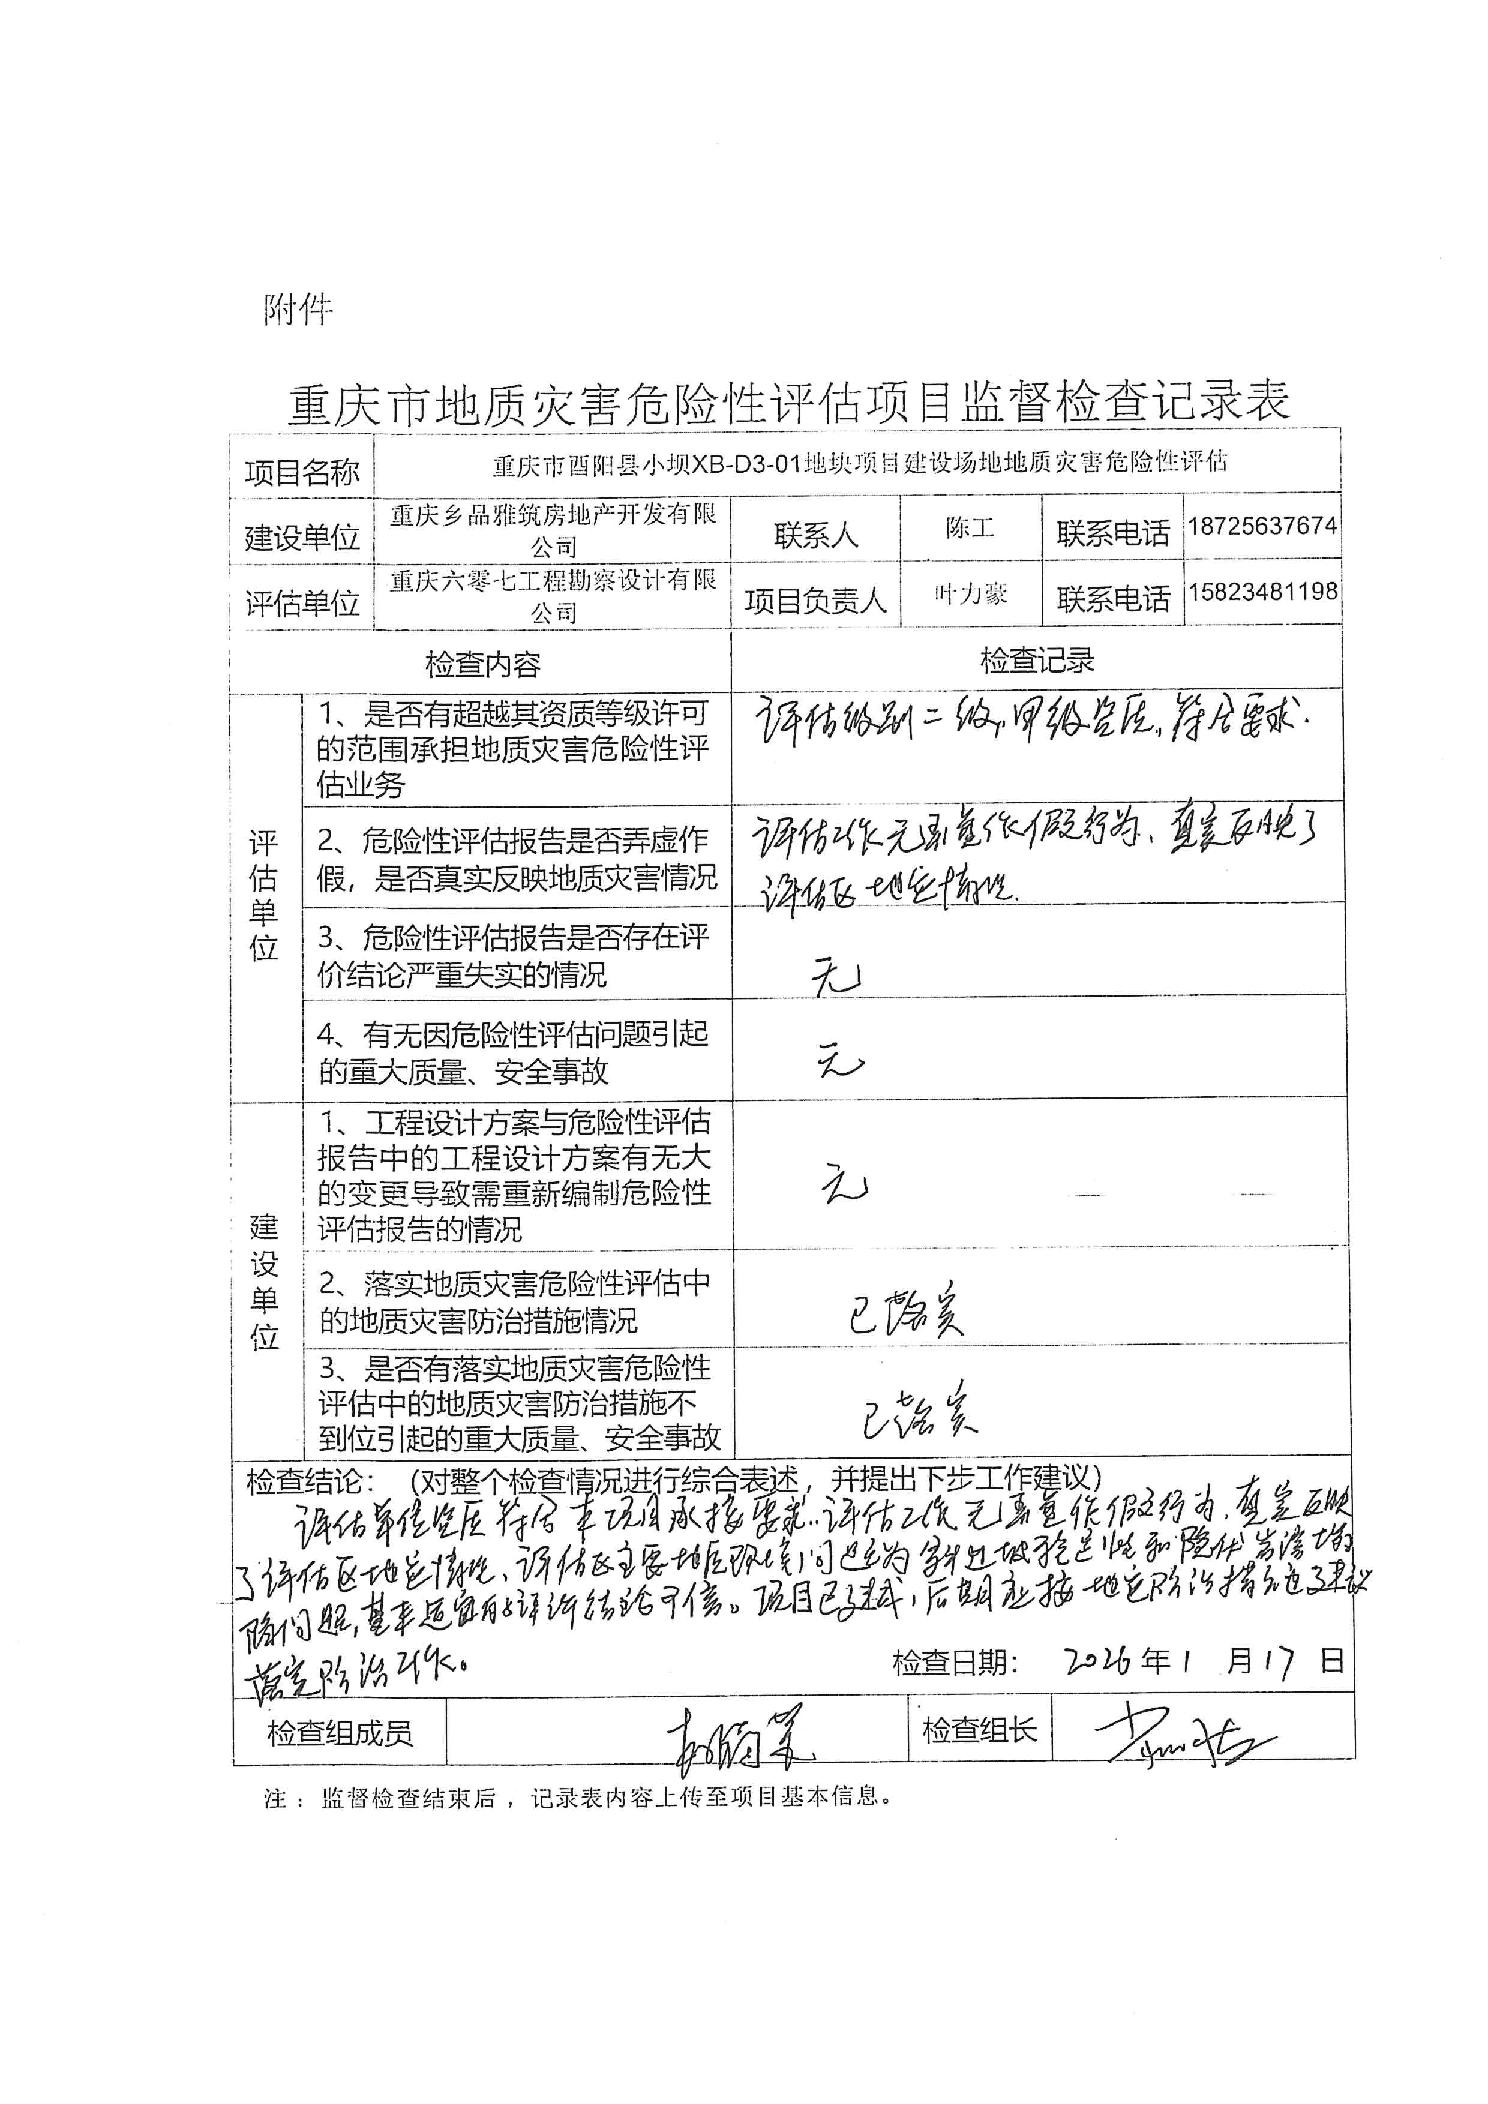 附件
重庆市地质灾害危险性评估项目监督检查记录表
项目名称 重庆市酉阳县小坝XB-D3-01地块项目建设场地地质灾害危险性评估
建设单位 重庆乡品雅筑房地产开发有限
公司 联系人 陈工 联系电话 18725637674
评估单位 重庆六零七工程勘察设计有限
公司 项目负责人 叶力豪 联系电话 15823481198
检查内容 检查记录
评估单位
1、是否有超越其资质等级许可
的范围承担地质灾害危险性评
估业务
评估级别二级,甲级资质,符合要求.
2、危险性评估报告是否弄虚作
假，是否真实反映地质灾害情况
评估工作无弄虚作假行为、真实反映了
评估区地灾情况.
3、危险性评估报告是否存在评
价结论严重失实的情况
无
4、有无因危险性评估问题引起
的重大质量、安全事故
无
建设单位
1、工程设计方案与危险性评估
报告中的工程设计方案有无大
的变更导致需重新编制危险性
评估报告的情况
无
2、落实地质灾害危险性评估中
的地质灾害防治措施情况
已落实
3、是否有落实地质灾害危险性
评估中的地质灾害防治措施不
到位引起的重大质量、安全事故
已落实
检查结论：（对整个检查情况进行综合表述，并提出下步工作建议）
评估单位资质符合本项目承接要求.评估工作无弄虚作假行为,真实反映
了评估区地灾情况、评估区主要地质环境问题为斜边坡稳定性和隐伏岩溶塌
陷问题,基本适宜的评估结论可信。项目已建成,后期应按地灾防治措施建议
落实防治工作。
检查日期： 2026年1月17日
检查组成员 检查组长
注：监督检查结束后，记录表内容上传至项目基本信息。